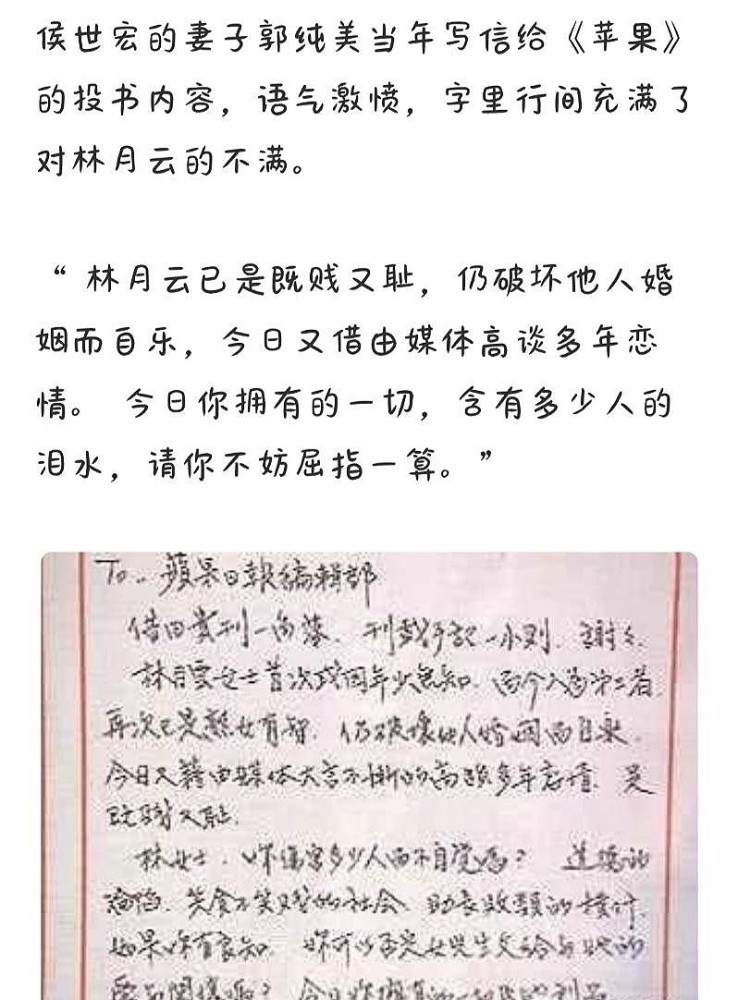 侯世宏的妻子郭纯美当年写信给《苹果》
的投书内容，语气激愤，字里行间充满了
对林月云的不满。
“ 林月云已是既贱又耻，仍破坏他人婚
姻而自乐，今日又借由媒体高谈多年恋
情。 今日你拥有的一切，含有多少人的
泪水，请你不妨屈指一算。”
To.. 蘋果日報編輯部
借由貴刊一角落、刊載予啟一小則、謝
林月雲女士首次或因年少無知、而介入為第三者
再次已是熟女有智、仍破壞他人婚姻而自樂
今日又藉由媒体大言不慚的高談多年恋情、是
既賤又恥.
林女士、你傷害多少人而不自覺嗎？道德的
淪陷、笑貧不笑娼的社会、
如果你有良知、